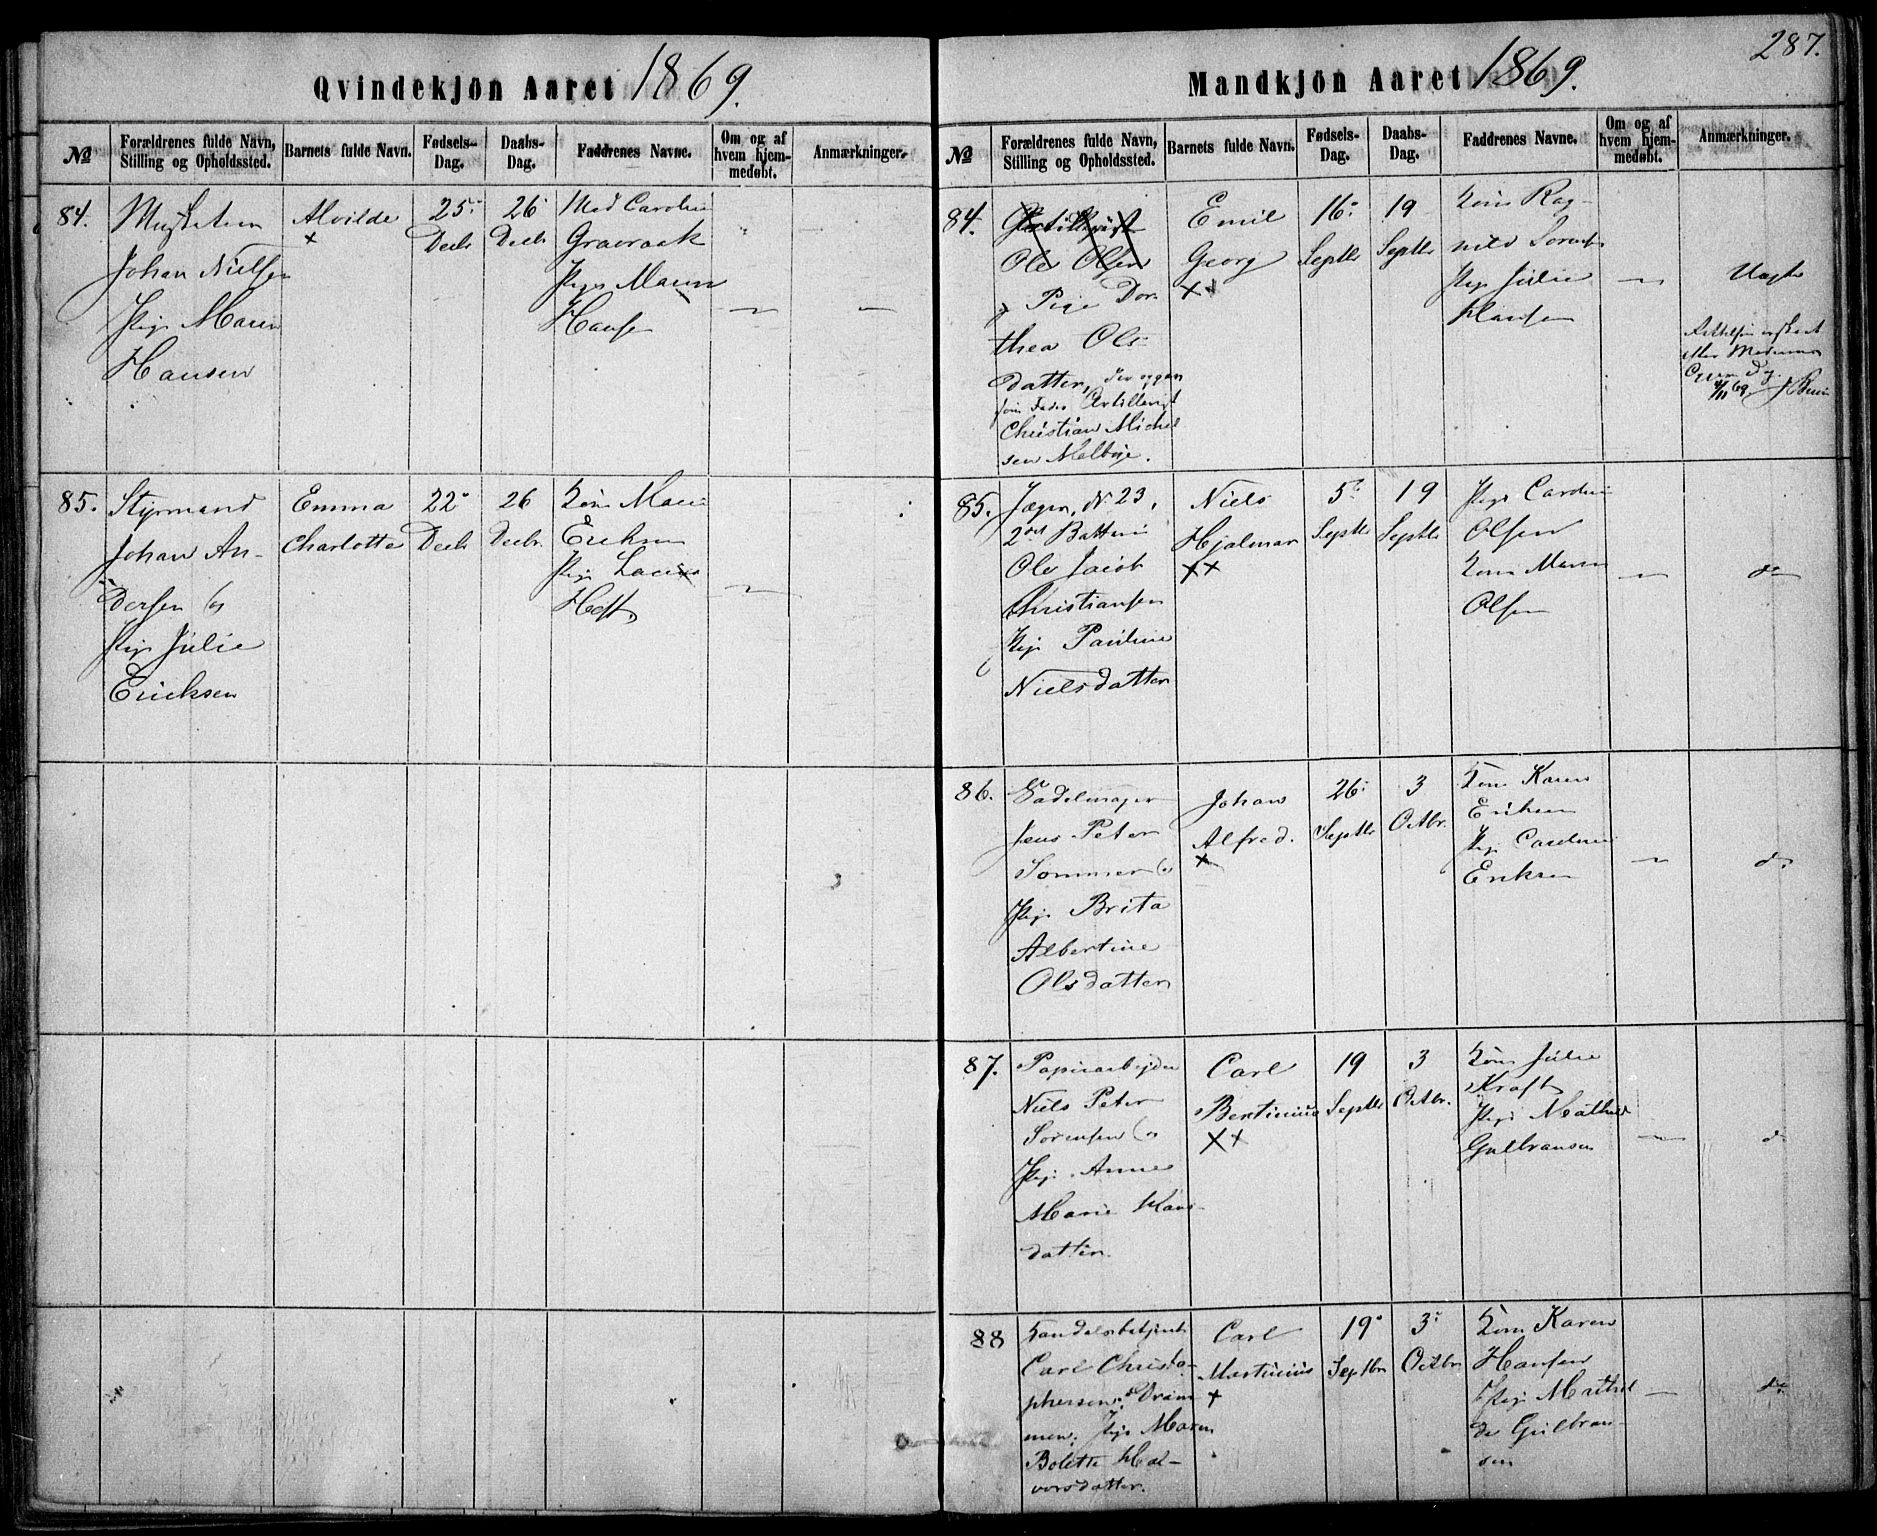 287.
Qvindekjön Aaret 1869.
№
Forældrenes fulde Navn,
Stilling og Opholdssted.
Barnets fulde Navn.
Fødsels-
Dag.
Daabs-
Dag.
Faddrenes Navne.
Om og af
hvem hjem-
medøbt.
Anmærkninger.
84.
Johan Nielsen
Pige Maren
Hansen
Alvilde
25
Decbr
26
Decbr
Mad Caroline
Pige Maren
Hansen
85.
Styrmand
Johan An-
dersen og
Pige Julie
Ericksen
Emma
Charlotte
22
Decbr
26
Decbr.
Kone Marie
Eriksen
Pige
Mandkjön Aaret 1869.
№
Forældrenes fulde Navn,
Stilling og Opholdssted.
Barnets fulde Navn.
Fødsels-
Dag.
Daabs-
Dag.
Faddrenes Navne.
Om og af
hvem hjem-
medøbt.
Anmærkninger.
84.
Ole Olsen
Pige Dor
thea Ols
datter,
Artillerist
Christian Michel
sen Melbye.
Emil
Georg
16
Septbr
19
Septbr
Kone Rag-
nild Sorensen
Pige Julie
Hansen
Uægte
85.
Jæger, N. 23,
Ole Jacob
Christiansen
Pige Pauline
Nielsdatter
Niels
Hjalmar
5
Septbr
19
Septbr
Pige Caroline
Olsen
Kone Maren
Olsen
do
86.
Sadelmager
Jens Peter
Sommer og
Pige Brita
Albertine
Olsdatter
Johan
Alfred.
26
Septbr
3
Octbr.
Kone Karen
Eriksen
Pige Caroline
Eriksen
do
87.
Papirarbejder
Niels Peter
Sörensen og
Pige Anne
Marie Hans
datter.
Carl
Bertinius
19
Septbr
3
Octbr.
Kone Julie
Kraft
Pige Mathild
Gulbransen
do
88
Handelsbetjent
Carl Christo-
phersen, Dram
men, Pige Maren
Bolette Hal-
vorsdatter.
Carl
Martinius
19
Septbr
3
Octbr
Kone Karen
Hansen
Pige Mathil
de Gulbran-
sen
do